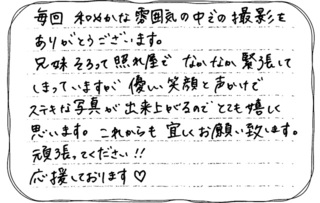 毎回 和やかな雰囲気の中での撮影を
ありがとうございます。
兄妹そろって照れ屋で なかなか緊張して
しまっていますが 優しい笑顔と声かけで
ステキな写真が出来上がるので とても嬉しく
思います。これからも 宜しくお願い致します。
頑張ってください!!
応援しております♡